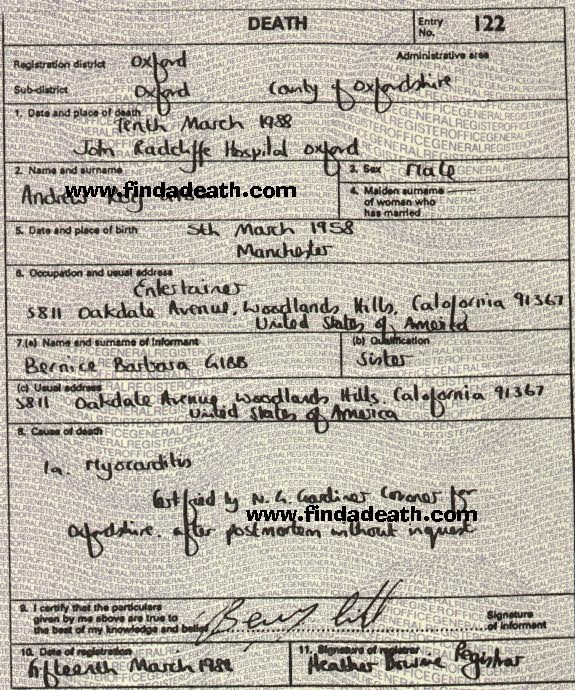 DEATH
Entry No. 122
Registration district Oxford
Administrative area
Sub-district Oxford County of Oxfordshire
1. Date and place of death
Tenth March 1988
John Radcliffe Hospital Oxford
2. Name and surname
3. Sex Male
Andrew Roy
www.findadeath.com
4. Maiden surname of woman who has married
5. Date and place of birth 5th March 1958
Manchester
6. Occupation and usual address
Entertainer
5811 Oakdale Avenue, Woodlands Hills, Calofornia 91367
United States of America
7.(a) Name and surname of informant
(b) Qualification
Bernice Barbara GIBB
Sister
(c) Usual address
5811 Oakdale Avenue Woodlands Hills, Calofornia 91367
United States of America
8. Cause of death
1a. Myocarditis
Certified by N. G. Gardiner Coroner for
www.findadeath.com
Oxfordshire. after postmortem without inquest
9. I certify that the particulars
given by me above are true to
the best of my knowledge and belief
Signature
of informant
10. Date of registration
11. Signature of registrar
Fifteenth March 1988
Heather Registrar